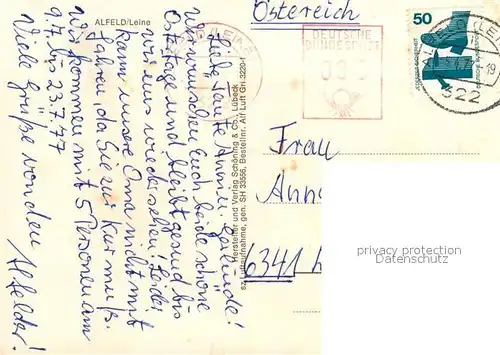 ALFELD/Leine
Liebe Tante Anni u. Gebinde!
Wir wünschen Euch beide schöne
Ostertage und bleibt gesund bis
wir uns wiedersehen! Leider
kann unsere Oma nicht mit
fahren, da Sie zur Kur muß.
Wir kommen mit 5 Personen am
9.7. bis 23.7.77
Viele Grüße von den Alfelder!
Hersteller und Verlag Schöning & Co., Lübeck
sz Luftaufnahme, gen. SH 33556, Bestellnr. Alf Luft Gri 3220-1
Östereich
DEUTSCHE
BUNDESPOST
50
322
19
Frau
Anne
6341
privacy protection
Datenschutz